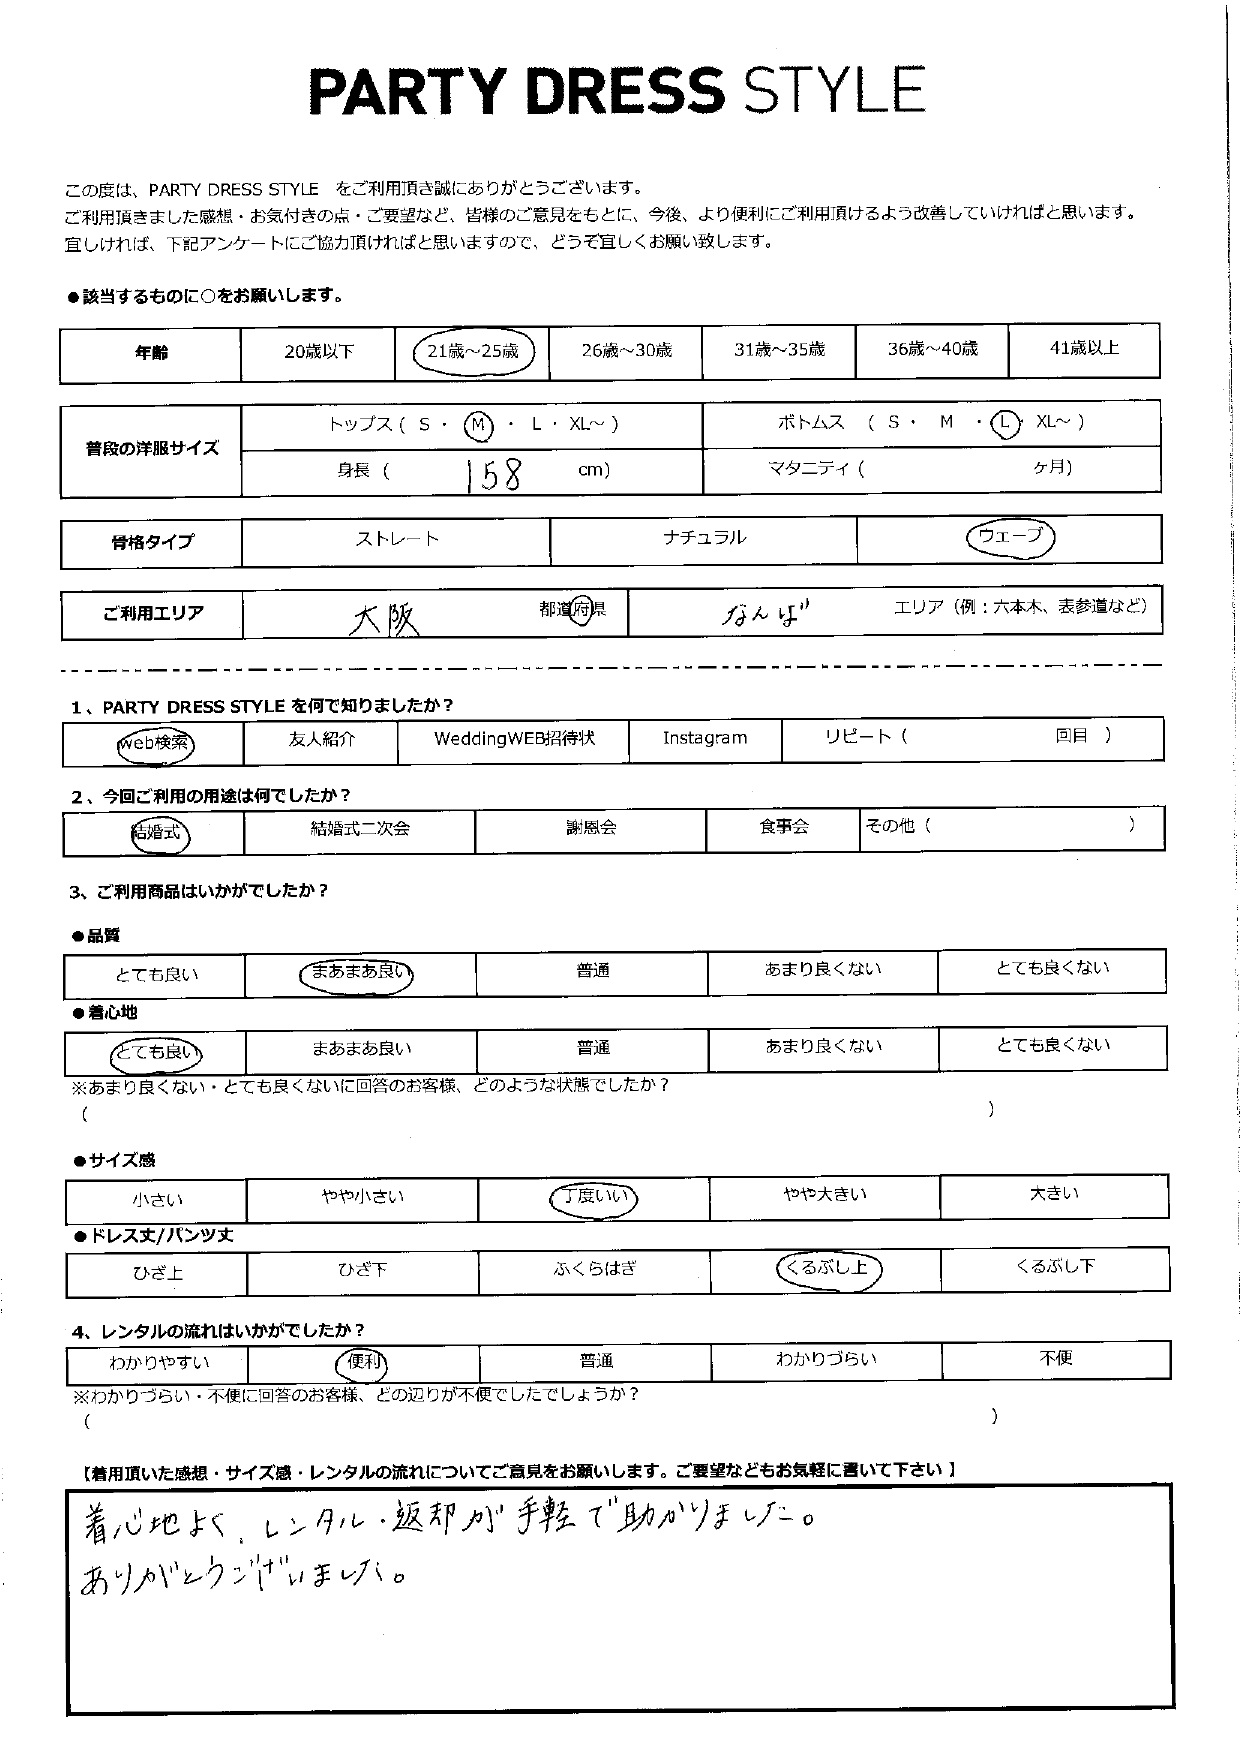 PARTY DRESS STYLE
この度は、PARTY DRESS STYLE をご利用頂き誠にありがとうございます。
ご利用頂きました感想・お気付きの点・ご要望など、皆様のご意見をもとに、今後、より便利にご利用頂けるよう改善していければと思います。
宜しければ、下記アンケートにご協力頂ければと思いますので、どうぞ宜しくお願い致します。
●該当するものに○をお願いします。
年齢 20歳以下 21歳～25歳 26歳～30歳 31歳～35歳 36歳～40歳 41歳以上
普段の洋服サイズ
トップス ( S ・ M ・ L ・ XL～ ) ボトムス ( S ・ M ・ L ・ XL～ )
身長 ( 158 cm) マタニティ ( ヶ月)
骨格タイプ ストレート ナチュラル ウェーブ
ご利用エリア 大阪 都道府県 なんば エリア（例：六本木、表参道など）
1、PARTY DRESS STYLE を何で知りましたか？
web検索 友人紹介 WeddingWEB招待状 Instagram リピート ( 回目 )
2、今回ご利用の用途は何でしたか？
結婚式 結婚式二次会 謝恩会 食事会 その他 ( )
3、ご利用商品はいかがでしたか？
●品質
とても良い まあまあ良い 普通 あまり良くない とても良くない
●着心地
とても良い まあまあ良い 普通 あまり良くない とても良くない
※あまり良くない・とても良くないに回答のお客様、どのような状態でしたか？
( )
●サイズ感
小さい やや小さい 丁度いい やや大きい 大きい
●ドレス丈/パンツ丈
ひざ上 ひざ下 ふくらはぎ くるぶし上 くるぶし下
4、レンタルの流れはいかがでしたか？
わかりやすい 便利 普通 わかりづらい 不便
※わかりづらい・不便に回答のお客様、どの辺りが不便でしたでしょうか？
( )
【着用頂いた感想・サイズ感・レンタルの流れについてご意見をお願いします。ご要望などもお気軽に書いて下さい】
着心地よく、レンタル・返却が手軽で助かりました。
ありがとうございました。